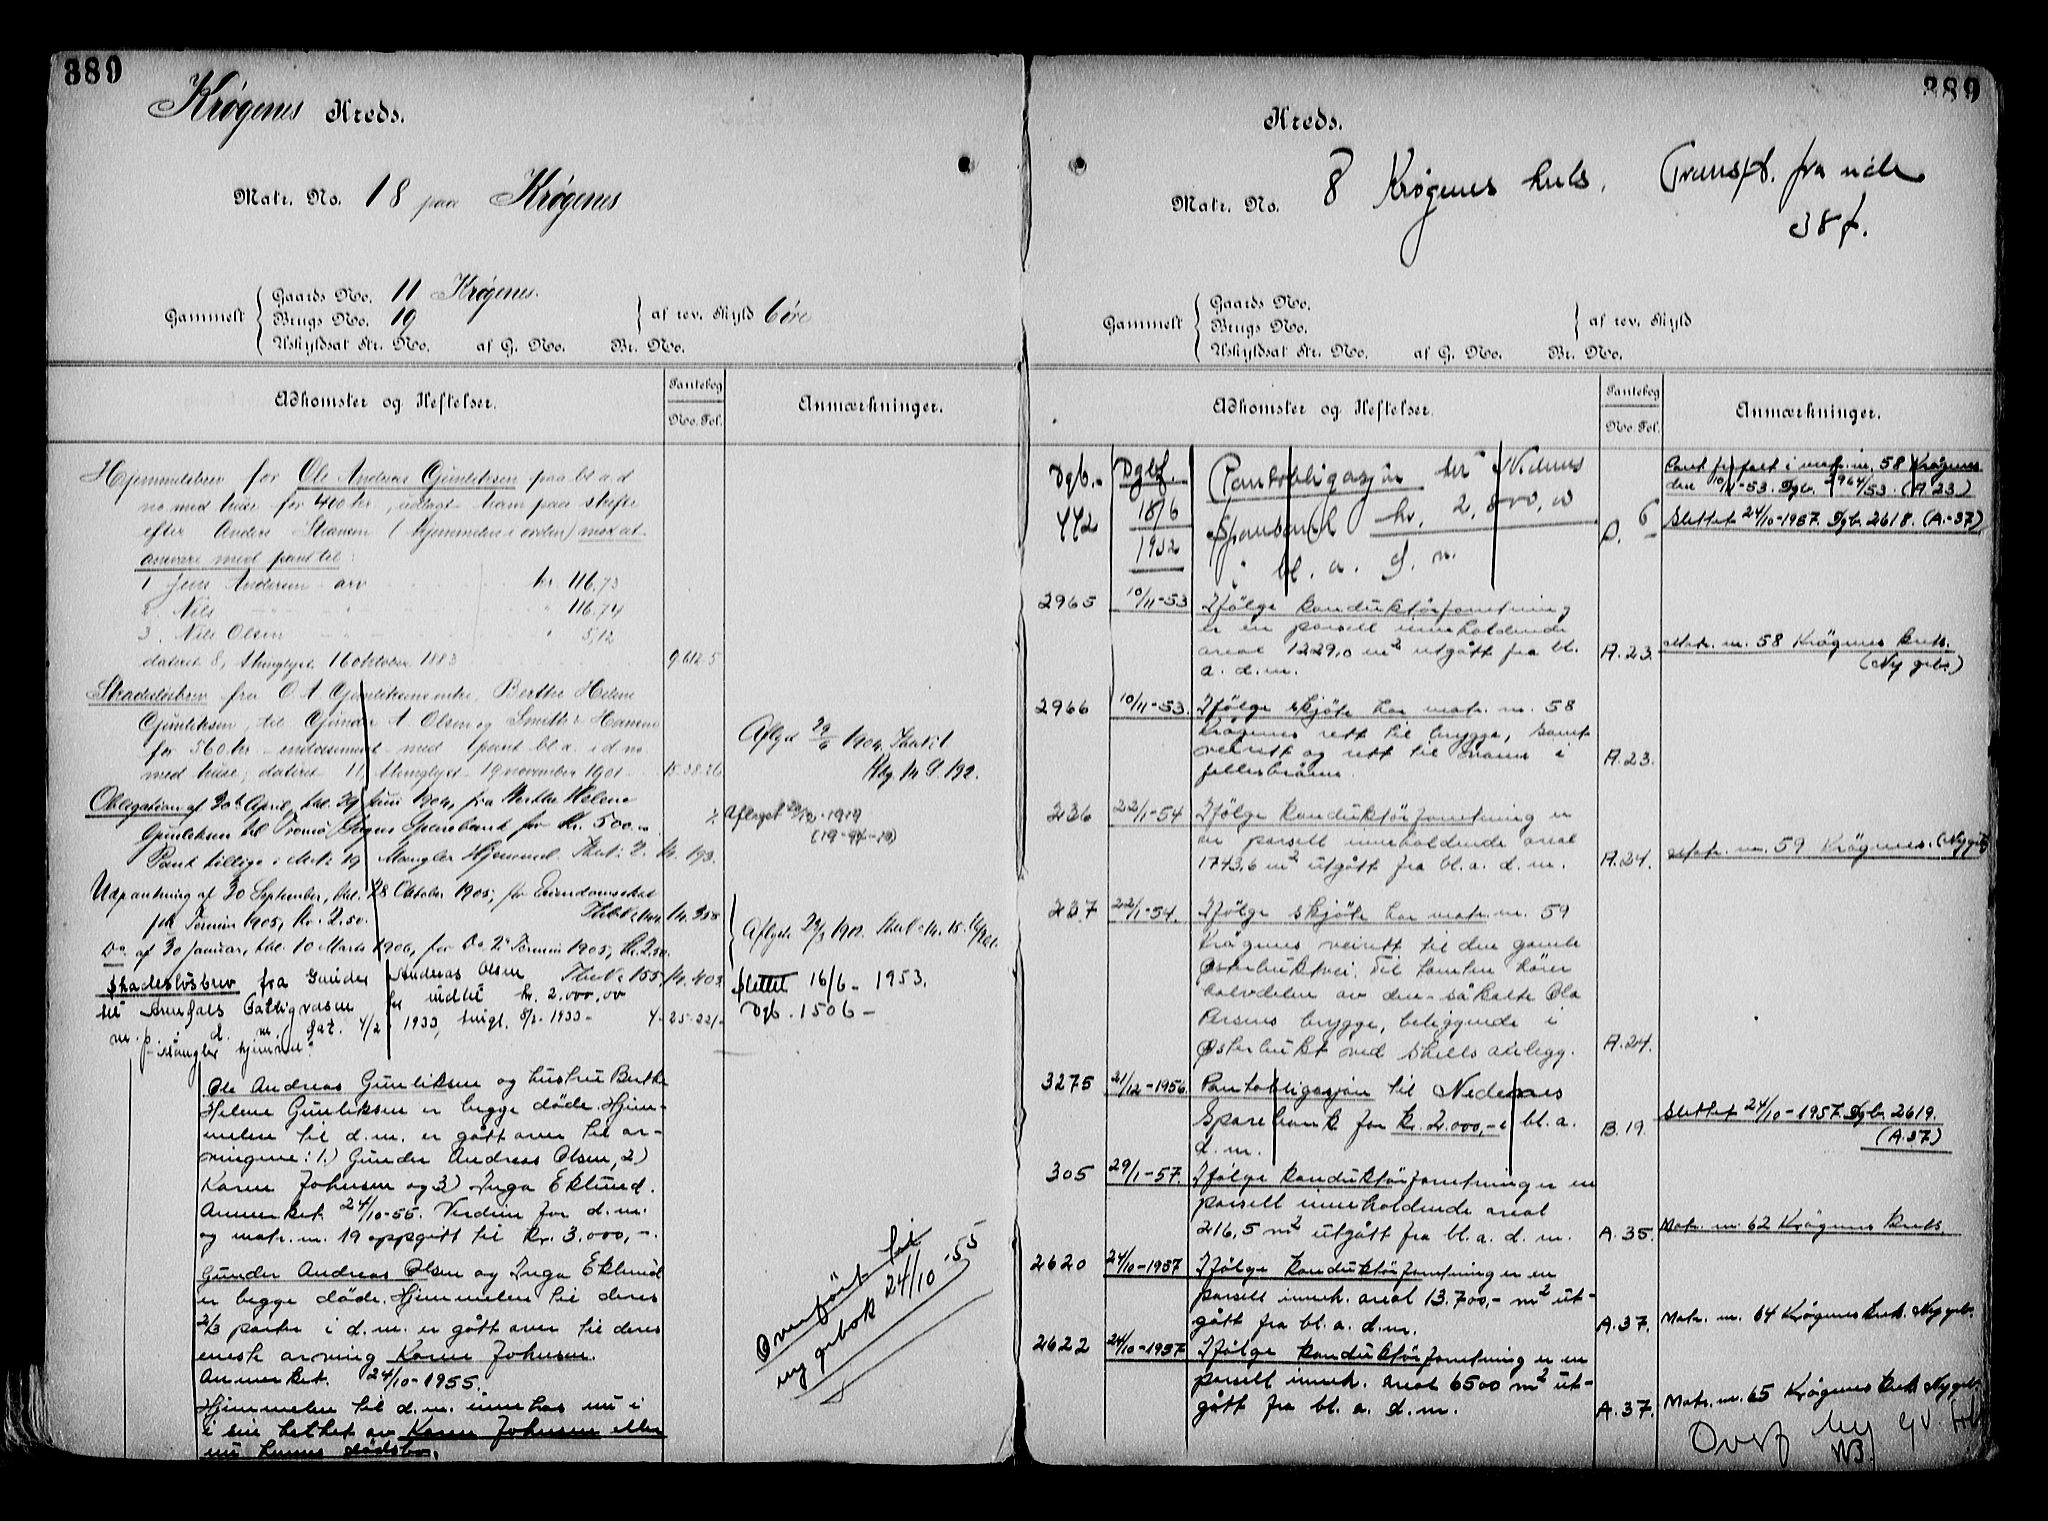 389
Krøgenes Kreds.
Matr. No. 18 paa Krøgenes
Gammelt
Gaards No. 11 Krøgenes.
Brugs No. 19
Uskyldsat Str. No. af G. No. Br. No.
af rev. Skyld 6 øre
Adkomster og Heftelser.
Pantebog
No. Fol.
Anmærkninger.
Hjemmelsbrev for Ole Andreas Gjunleksen paa bl. a. d
no med huse for 400 kr, udlagt ham paa skifte
efter Anders (Hjemmelen i orden) mod at
ansvare med pant til:
1 Jens Andersen arv kr. 116,73
2. Nils " 116,74
3. Nils Olsen " 5,12
dateret 8, thinglyst 16 oktober 1883 9.612.5
Skadesløsbrev fra O A Gjunleksens enke, Berthe Helene
Gjunleksen, til Gjunder A. Olsen og Smith & Hansen
for 560 kr. med 1 pant bl. a. i d no.
med huse, dateret 11, thinglyst 19 november 1901 15.38.26
Aflyst 29/6 1904.
Obligation af 30te April, thl. 29 Juni 1904, fra Berthe Helene
Gjunleksen til Tromø Sogns Sparebank for Kr. 500.
Pant tillige i Mat: 19 Mangler Hjemmel. 14. 193.
Aflyset 1919
Udpantning af 30 September, thl. 28 Oktober 1905, for Eiendomsskat
pr Termin 1905, Kr. 2.50. 14. 358
Do af 30 Januar, thl. 10 Marts 1906, for Do 2. Termin 1905, Kr. 2.50.
155, 14. 403
Skadesløsbrev fra Gunder Andreas Olsen
til Arendals Fattigvæsen for indtil kr. 2.000,00
m. p. i d. m. dat. 4/2 1933, tingl. 8/2-1933 - 25-221-
Mangler hjemmel.
Slettet 16/6 - 1953.
Dgb. 1506 -
Ole Andreas Gunleksen og hustru Berthe
Helene Gunleksen er begge døde. Hjem-
melen til d. m. er gått over til ar-
vingene: 1.) Gunder Andreas Olsen, 2)
Karen Johnsen og 3) Inga Eklund.
Anmerket 24/10-55. Verdien for d. m.
og matr. nr. 19 oppgitt til kr. 3.000,-.
Gunder Andreas Olsen og Inga Eklund
er begge døde. Hjemmelen til deres
2/3 parter i d. m. er gått over til deres
eneste arving Karen Johnsen.
Anmerket. 24/10-1955.
Hjemmelen til d. m. innehas nu i
i sin helhet av Karen Johnsen eller
nu hennes dødsbo.
Overført til
ny gr.bok 24/10-55
389
Kreds.
Matr. No. 8 Krøgenes kreds. Transpt. fra side
387.
Gammelt
Gaards No.
Brugs No.
Uskyldsat Str. No. af G. No. Br. No.
af rev. Skyld
Adkomster og Heftelser.
Pantebog
No. Fol.
Anmærkninger.
Dgb. Dgbf. Pantobligasjon til Nidenes
772 18/6 1932 Sparebank kr. 2.800,00
i bl. a. d. m.
Pant frafalt i matr. nr. 58 Krøgenes
den 10/11-53. Dgb. 2964/53. (A 23)
Slettet 24/10-1957. Dgb. 2618. (A.-37)
2965 10/11-53 Ifølge konduktørforretning
er en parsell inneholdende
areal 1229,0 m2 utgått fra bl.
a. d. m. A. 23. Matr. nr. 58 Krögenes krets.
(Ny grb.)
2966 10/11-53. Ifølge skjöte har matr. nr. 58
Krögenes rett til brygge, samt
veirett og rett til vann i
fellesbrönn. A. 23.
236 22/1-54 Ifølge konduktørforretning er
en parsell inneholdende areal
1743,6 m2 utgått fra bl. a. d. m. A. 24. Matr. nr. 59 Krögenes.
237 22/1-54. Ifølge skjöte har matr. nr. 59
Krögenes veirett til den gamle
Østerbuktvei. Til tomten hører
halvdelen av den såkalte Ola
Persens brygge, beliggende i
Østerbukt ved Shells anlegg. A. 24.
3275 21/12-1956. Pantobligasjon til Nedenes
Sparebank for kr. 2.000,- i bl. a.
d. m. B. 19. Slettet 24/10-1957. Dgb. 2619.
(A. 37)
305 29/1-57. Ifølge konduktørforretning er en
parsell inneholdende areal
216,5 m2 utgått fra bl. a. d. m. A. 35. Matr. nr. 62 Krögenes krets.
2620 24/10-1957 Ifølge konduktørforretning er en
parsell inneh. areal 13.700,- m2 ut-
gått fra bl. a. d. m. A. 37. Matr. nr. 64 Krögenes krets Ny grb.
2622 24/10-1957 Ifølge konduktørforretning er en
parsell inneh. areal 6500 m2 ut-
gått fra bl. a. d. m. A. 37. Matr. nr. 65 Krögenes krets Ny grb.
Overf ny